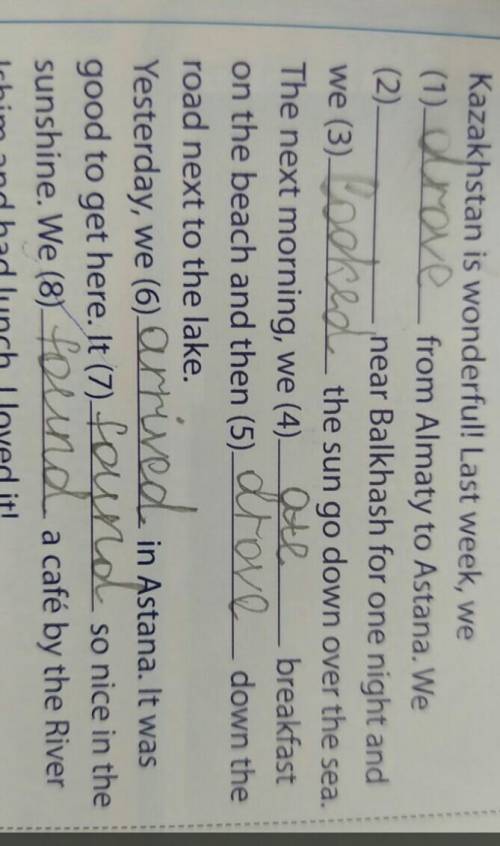 Kazakhstan is wonderful! Last week, we
(1) drove from Almaty to Astana. We
(2)________ near Balkhash for one night and
we (3) looked the sun go down over the sea.
The next morning, we (4) ate breakfast
on the beach and then (5) drove down the
road next to the lake.
Yesterday, we (6) arrived in Astana. It was
good to get here. It (7) found so nice in the
sunshine. We (8) found a café by the River
Ishim and had lunch. I loved it!